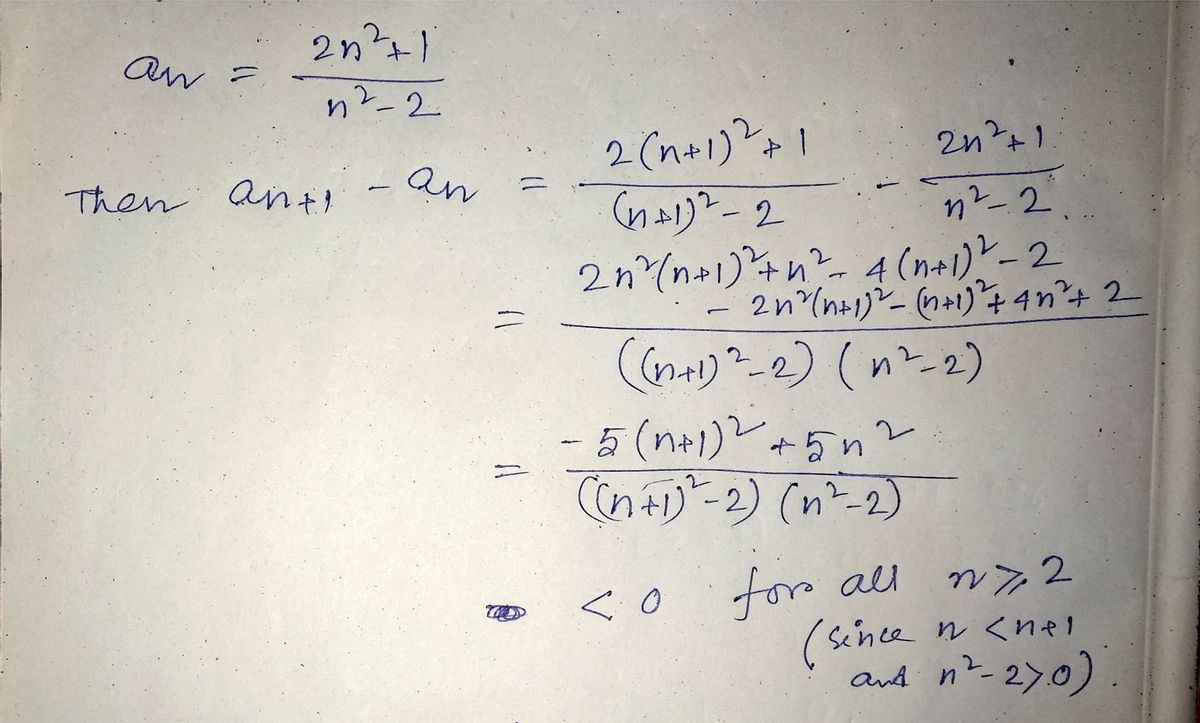 an = (2n²+1)/(n²-2)
Then an+1 - an = (2(n+1)²+1)/((n+1)²-2) - (2n²+1)/(n²-2)
= (2n²(n+1)²+n²-4(n+1)²-2
- 2n²(n+1)²-(n+1)²+4n²+2)/(((n+1)²-2)(n²-2))
= (-5(n+1)²+5n²)/(((n+1)²-2)(n²-2))
< 0 for all n⩾2
(since n <n+1
and n²-2>0).